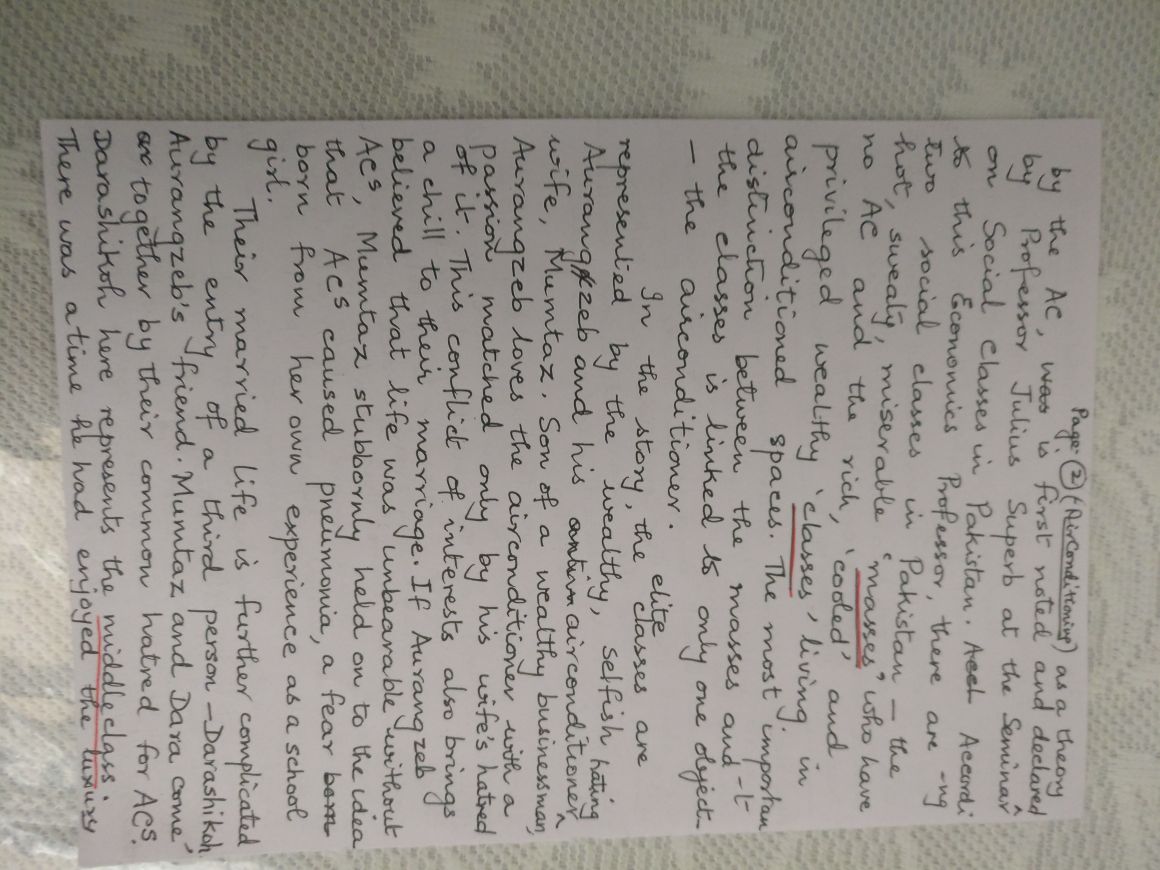 Page-② (AirConditioning) as a theory
by the AC, was is first noted and declared
by Professor Julius Superb at the Seminar
on Social Classes in Pakistan. Accl Accordi
to this Economics Professor, there are -ng
two social classes in Pakistan – the
hot, sweaty, miserable 'masses" who have
no AC and the rich, 'cooled' and
privileged wealthy 'classes' living in
airconditioned spaces. The most importan
distinction between the masses and -t
the classes is linked to only one object-
– the airconditioner.
In the story, the elite classes are
represented by the wealthy, selfish
Aurangzeb and his airconditioner hating
wife, Mumtaz. Son of a wealthy businessman,
Aurangzeb loves the airconditioner with a
passion matched only by his wife's hatred
of it. This conflict of interests also brings
a chill to their marriage. If Aurangzeb
believed that life was unbearable without
ACs, Mumtaz stubbornly held on to the idea
that ACs caused pneumonia, a fear born
born from her own experience as a school
girl.
Their married life is further complicated
by the entry of a third person – Darashikoh,
Aurangzeb's friend. Mumtaz and Dara come
together by their common hatred for ACs.
Darashikoh here represents the middle class.
There was a time he had enjoyed the luxury